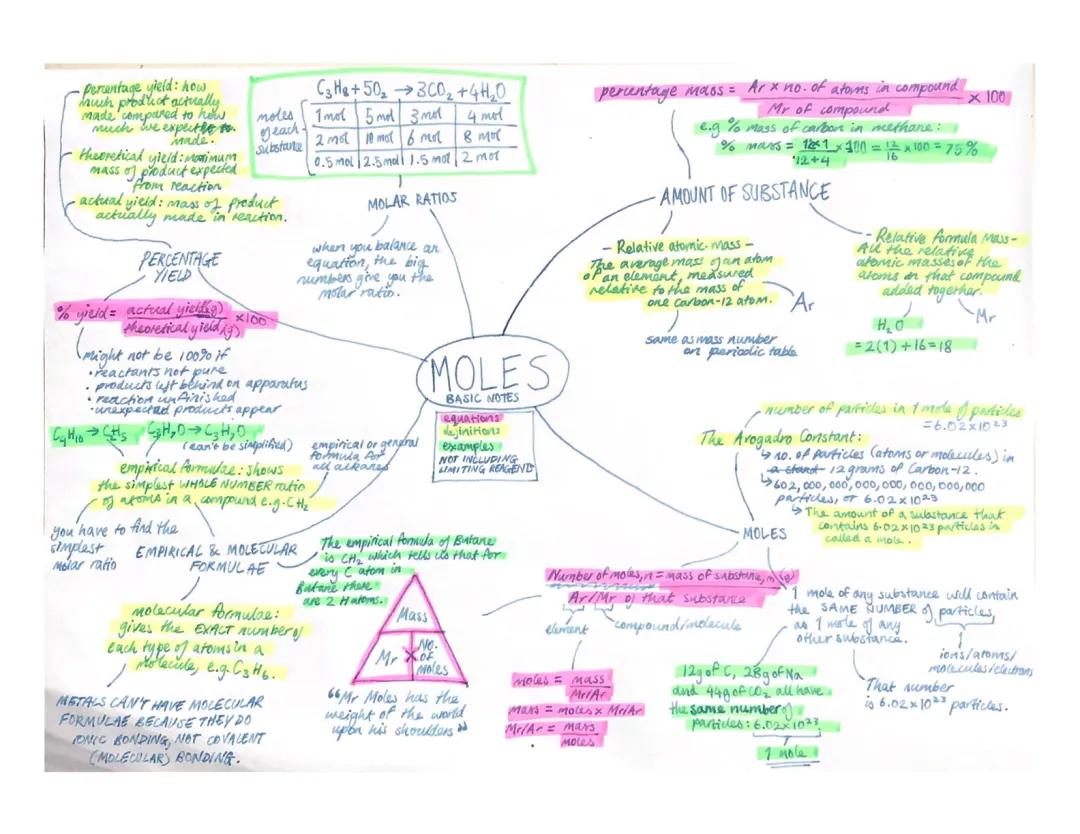 percentage yield: how
much product actually
made compared to how
much we expected to
made.
theoretical yield: maximum
mass of product expected
from reaction
actual yield: mass of product
actually made in reaction.
PERCENTAGE
YIELD
% yield = actual yield(g)
theoretical yield(g)
x100
might not be 100% if
• reactants not pure
• products left behind on apparatus
• reaction unfinished
• unexpected products appear
C₃H₈ + 5O₂ → 3CO₂ + 4H₂O
moles
of each
substance
1 mol 5 mol 3 mol 4 mol
2 mol 10 mol 6 mol 8 mol
0.5 mol 2.5 mol 1.5 mol 2 mol
MOLAR RATIOS
when you balance an
equation, the big
numbers give you the
molar ratio.
percentage mass = Ar x no. of atoms in compound
Mr of compound
x 100
e.g % mass of carbon in methane:
% mass = 12x1 x 100 = 12 x 100 = 75%
12+4 16
AMOUNT OF SUBSTANCE
- Relative atomic mass -
The average mass of an atom
of an element, measured
relative to the mass of
one carbon-12 atom.
Ar
same as mass number
on periodic table
- Relative Formula Mass -
All the relative
atomic masses of the
atoms in that compound
added together.
Mr
H₂O
= 2(1) + 16 = 18
MOLES
BASIC NOTES
equations
definitions
examples
NOT INCLUDING
LIMITING REAGENT
C₄H₁₀ → C₂H₅ C₃H₇O → C₃H₇O
(can't be simplified)
empirical formulae: shows
the simplest WHOLE NUMBER ratio
of atoms in a compound e.g. CH₂
empirical or general
formula for
all alkanes
you have to find the
simplest
molar ratio
EMPIRICAL & MOLECULAR
FORMULAE
The empirical formula of Butane
is CH₂ which tells us that for
every C atom in
Butane there
are 2 H atoms.
molecular formulae:
gives the EXACT number of
each type of atoms in a
molecule, e.g. C₃H₆.
METALS CAN'T HAVE MOLECULAR
FORMULAE BECAUSE THEY DO
IONIC BONDING, NOT COVALENT
(MOLECULAR) BONDING.
Mass
Mr x No. of Moles
"Mr Moles has the
weight of the world
upon his shoulders"
number of particles in 1 mole of particles
= 6.02x10²³
The Avogadro Constant:
↳ no. of particles (atoms or molecules) in
12 grams of Carbon-12.
↳ 602,000,000,000,000,000,000,000
particles, or 6.02x10²³
↳ The amount of a substance that
contains 6.02x10²³ particles is
called a mole.
MOLES
Number of moles, n = mass of substance, m (g)
Ar/Mr of that substance
element compound/molecule
moles = mass
Mr/Ar
mass = moles x Mr/Ar
Mr/Ar = mass
moles
1 mole of any substance will contain
the SAME NUMBER of particles,
as 1 mole of any
other substance.
ions/atoms/
molecules/electrons
That number
is 6.02x10²³ particles.
12g of C, 28g of Na
and 44g of CO₂ all have
the same number of
particles: 6.02x10²³
1 mole